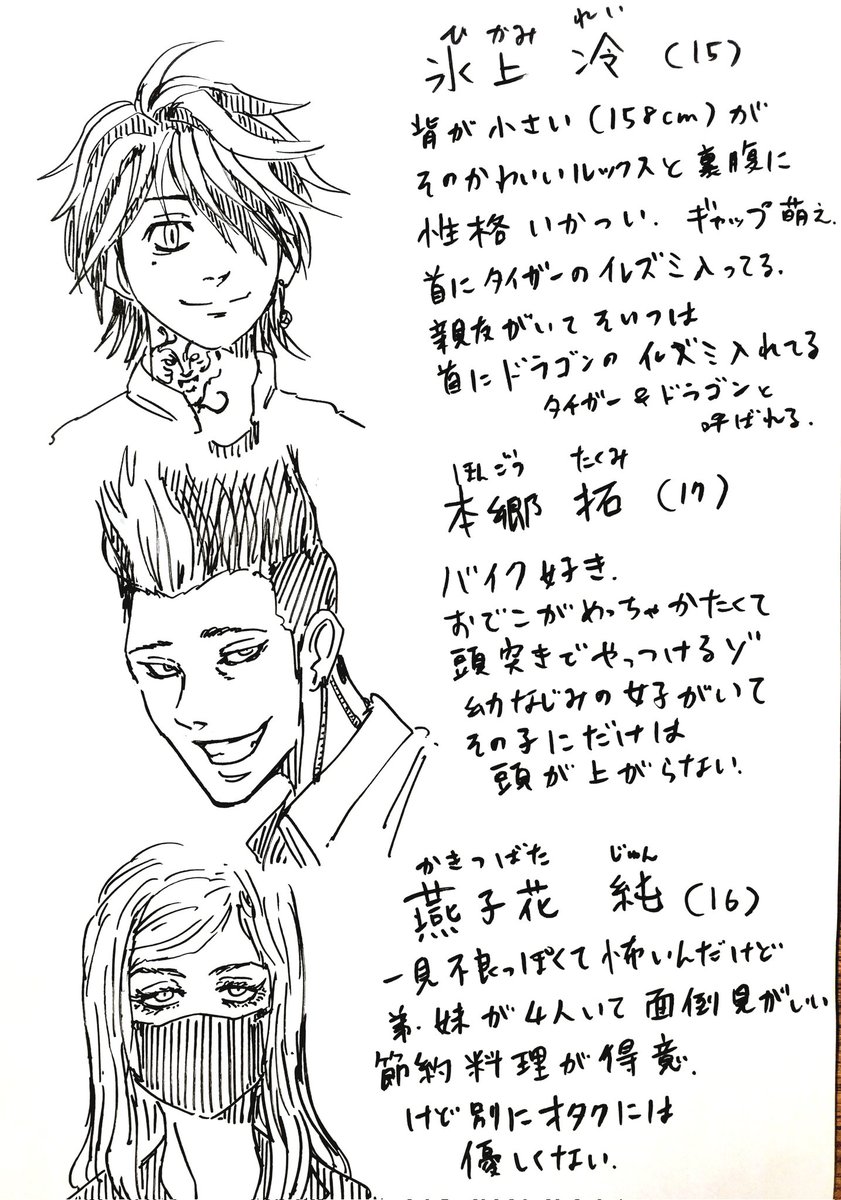 ひかみ れい
氷上 冷 (15)
背が小さい(158cm)が
そのかわいいルックスと裏腹に
性格いかつい. ギャップ萌え.
首にタイガーのイレズミ入ってる.
親友がいてそいつは
首にドラゴンのイレズミ入れてる
タイガー&ドラゴンと
呼ばれる.
ほんごう たくみ
本郷 拓 (17)
バイク好き.
おでこがめっちゃかたくて
頭突きでやっつけるゾ
幼なじみの女子がいて
その子にだけは
頭が上がらない.
かきつばた じゅん
燕子花 純 (16)
一見不良っぽくて怖いんだけど
弟.妹が4人いて面倒見がいい
節約料理が得意.
けど別にオタクには
優しくない.